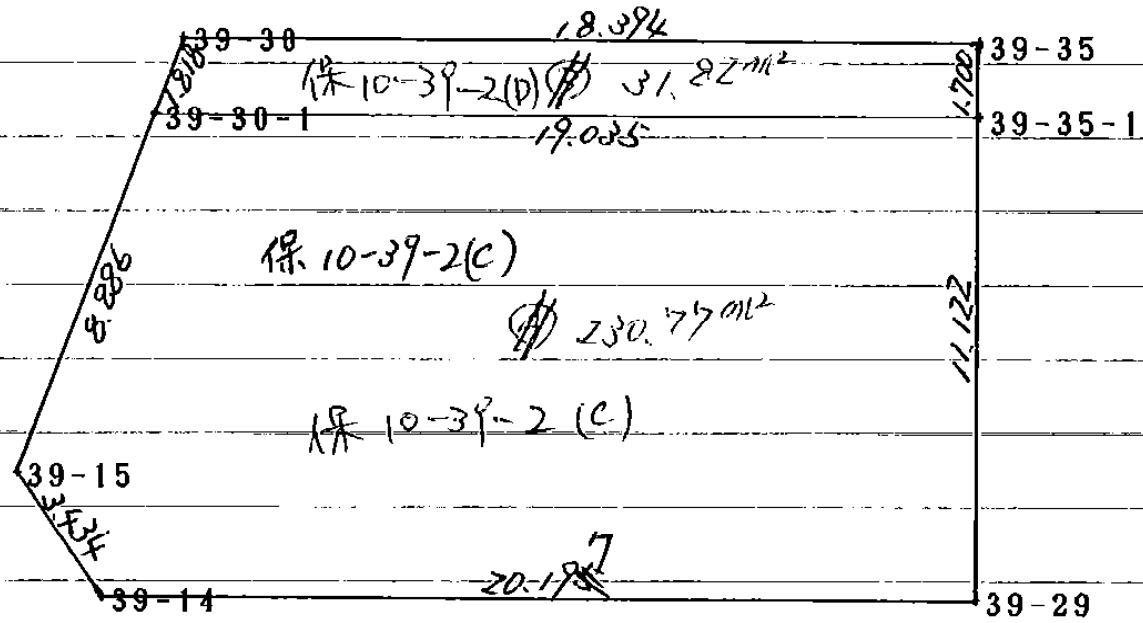 39-30 18.394 39-35
1.818 保10-39-2(D) 31.82m² 1.700
39-30-1 19.035 39-35-1
保10-39-2(C)
8.986 230.77m² 11.122
保10-39-2(C)
39-15
3.434
39-14 20.197 39-29